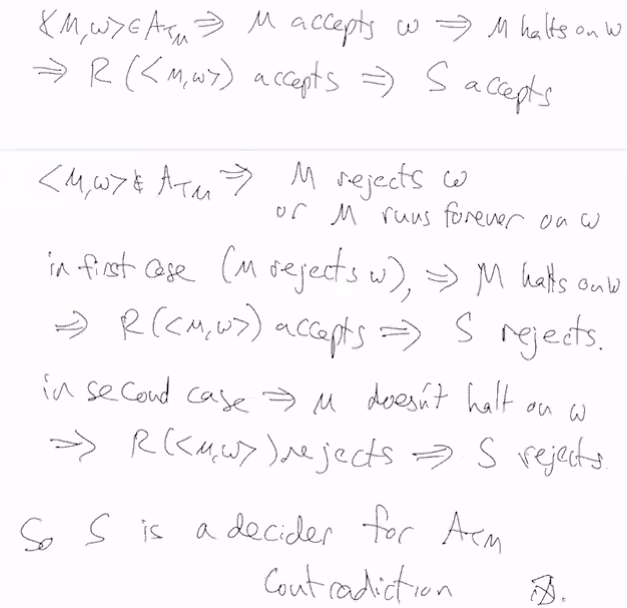 <M,w>∈A_TM ⇒ M accepts w ⇒ M halts on w
⇒ R(<M,w>) accepts ⇒ S accepts
<M,w>∉ A_TM ⇒ M rejects w
or M runs forever on w
in first case (M rejects w), ⇒ M halts on w
⇒ R(<M,w>) accepts ⇒ S rejects.
in second case ⇒ M doesn't halt on w
⇒ R(<M,w>) rejects ⇒ S rejects.
So S is a decider for A_TM
Contradiction